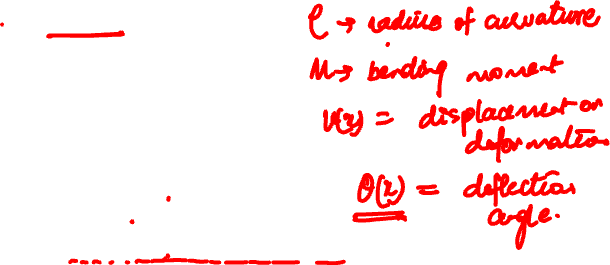 ρ → radius of curvature
M → bending moment
V(x) = displacement or
deformation
θ(x) = deflection
angle.